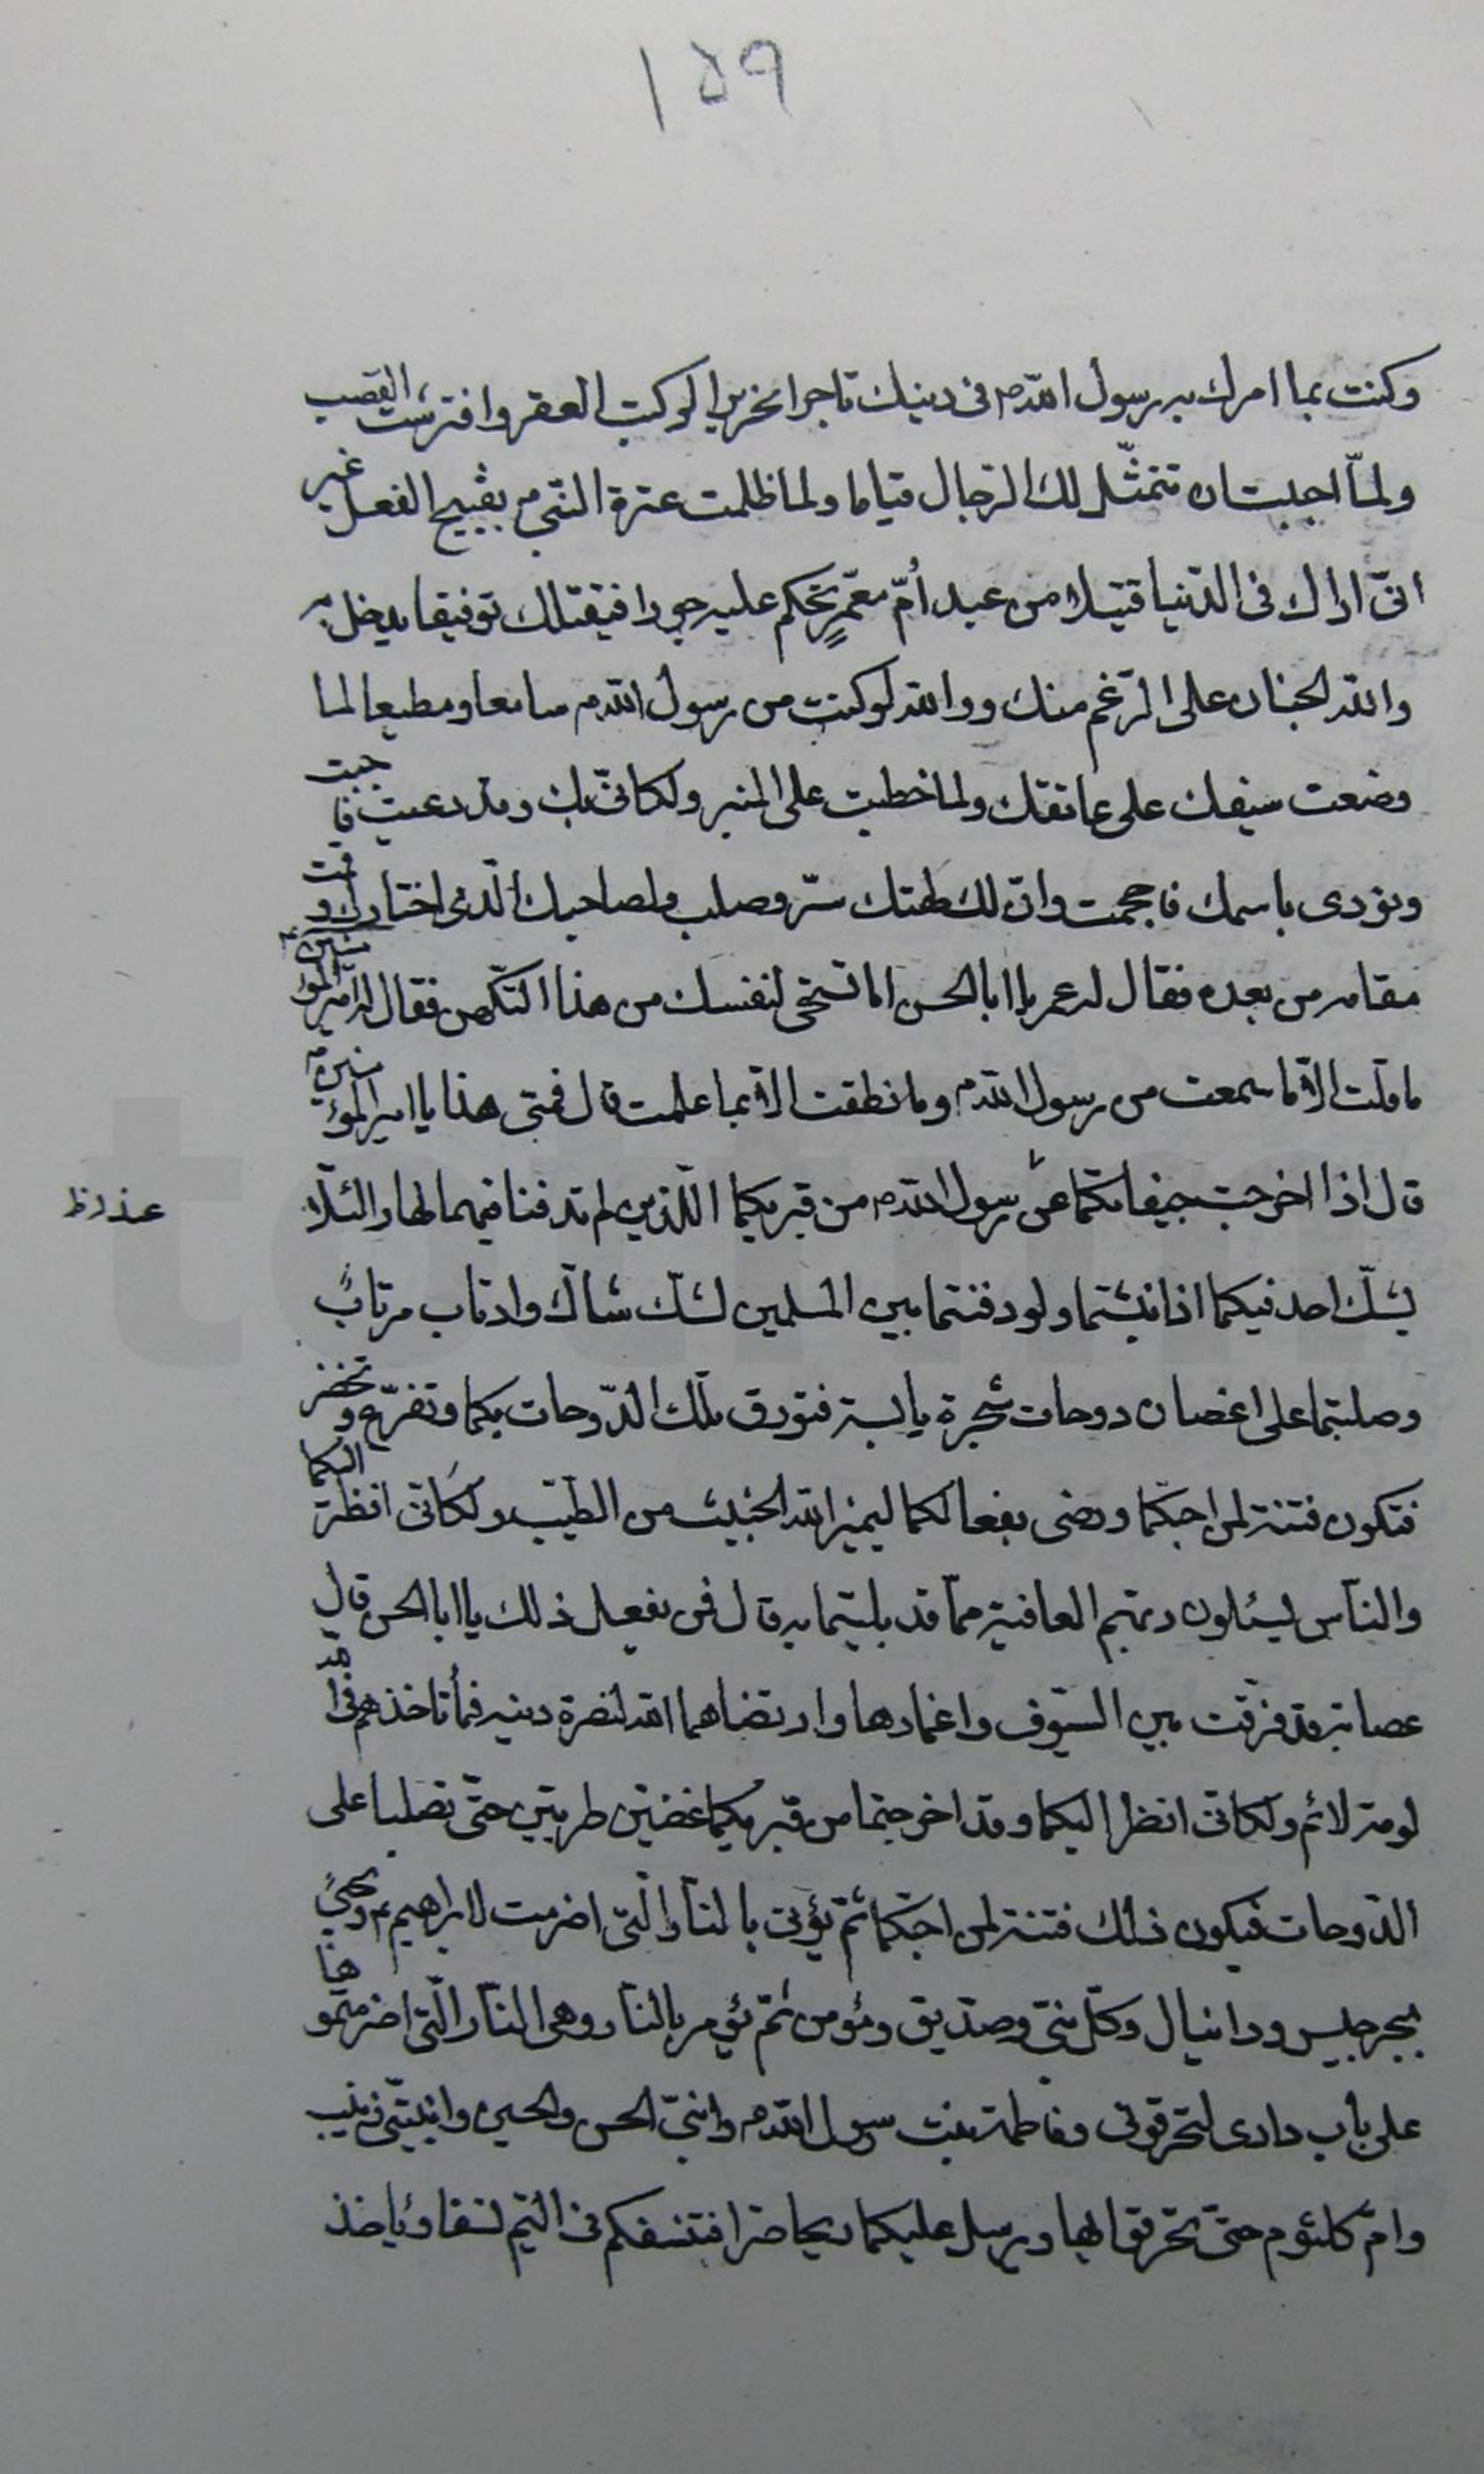 ١٥٩
وكنت بما امرك به رسول اللهم فى دينك تاجرا نحريرا لركبت العقر وافترشت القصب
ولما احببت ان تتمثل لك الرجال قياما ولما ظلمت عترة النبى م بقبيح الفعل غير
انى اراك فى الدنيا قتيلا من عبد أم معمر تحكم عليه جورا فيقتلك توفيقا يدخل به
والله الجنان على الرغم منك ووالله لو كنت من رسول اللهم سامعا ومطيعا لما
وضعت سيفك على عاتقك ولما خطبت على المنبر ولكانى بك وقد دعيت فاجبت
ونودى باسمك فاحجمت وان لك لهتك ستر وصلب ولصاحبك الذى اختارك وقمت
مقامه من بعده فقال له عمر يا ابا الحسن اما تستحى لنفسك من هذا التكهن فقال له امير المؤمنين ع
ما قلت الا ما سمعت من رسول اللهم وما نطقت الا بما علمت قال فمتى هذا يا امير المؤمنين ع
قال اذا اخرجت جيفاتكما عن رسول اللهم من قبريكما اللذين لم تدفنا فيهما نهارا لئلا
يشك احد فيكما اذا نبشتما ولو دفنتما بين المسلمين لشك شاك وارتاب مرتاب
وصلبتما على اغصان دوحات شجرة يابسة فتورق تلك الدوحات بكما وتفرع وتخضر
فتكون فتنة لمن احبكما ورضى بفعالكما ليميز الله الخبيث من الطيب ولكانى انظر اليكما
والناس يسئلون ربهم العافية مما قد بليتما به قال فمن يفعل ذلك يا ابا الحسن قال
عصابة قد فرقت بين السيوف واغمادها وارتضاهما الله لنصرة دينه فما تاخذهم فى الله
لومة لائم ولكانى انظر اليكما وقد اخرجتما من قبريكما غضين طريين حتى تصلبا على
الدوحات فيكون ذلك فتنة لمن احبكما ثم يؤتى بالنار التى اضرمت لابراهيم ع ويحيى
بجرجيس ودانيال وكل نبى وصديق ومؤمن ثم يؤمر بالنار وهى النار التى اضرمتموها
على باب دارى لتحرقونى وفاطمة بنت رسول اللهم وابنى الحسن والحسين وابنتى زينب
وام كلثوم حتى تحرقا بها ويرسل عليكما ريحا صرا فتنسفكم فى اليم نسفا وياخذ